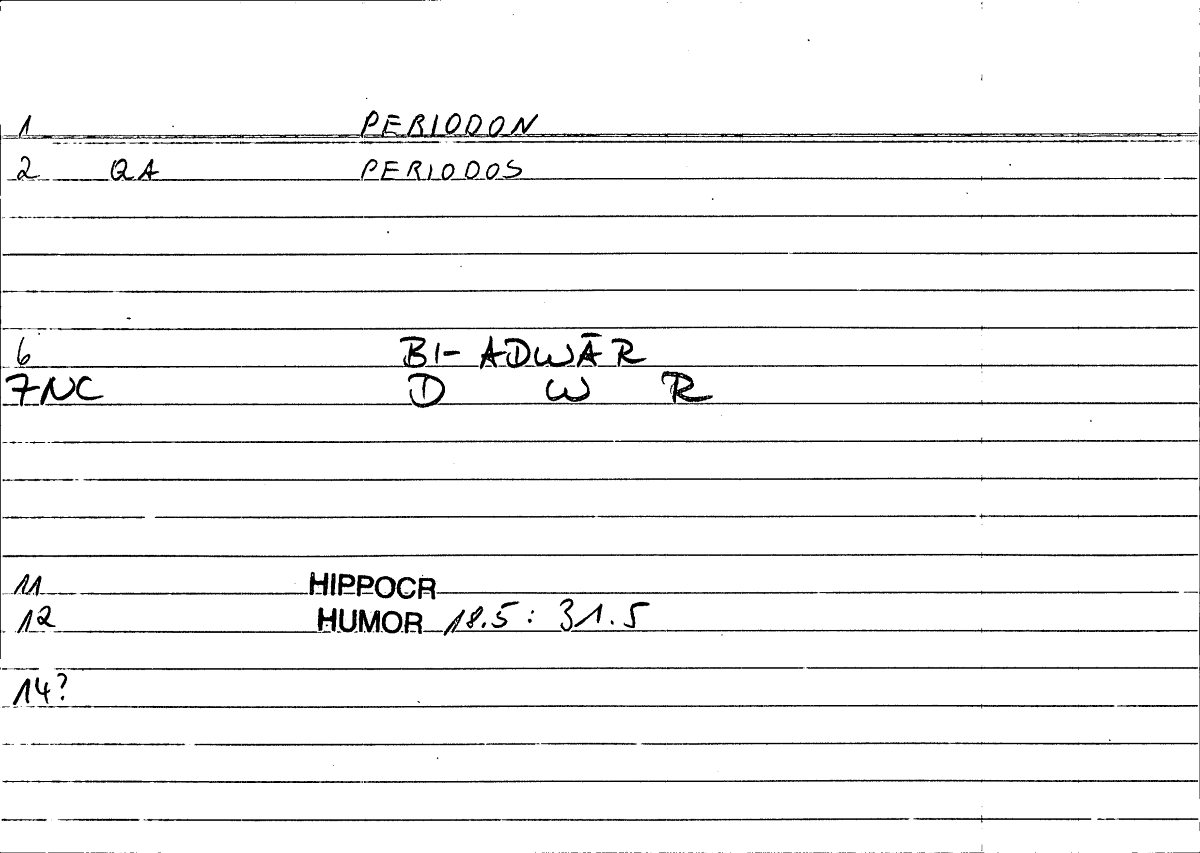 1 PERIODON
2 QA PERIODOS
6 BI- ADWĀR
7NC D W R
11 HIPPOCR
12 HUMOR 18.5: 31.5
14?